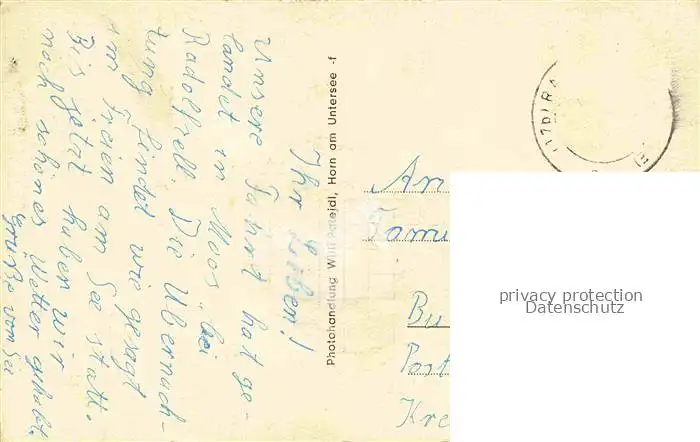 Ihr Lieben!
Unsere Fahrt hat ge-
landet in Moos, bei
Radolfzell. Die Übernach-
tung findet wie gesagt
im Freien am See statt.
Bis jetzt haben wir
noch schönes Wetter gehabt.
Grüße vom See
Photohandlung Willi Patejdl, Horn am Untersee -f
(17b) RA
An
Famu
Bu
Post
Kre
privacy protection
Datenschutz